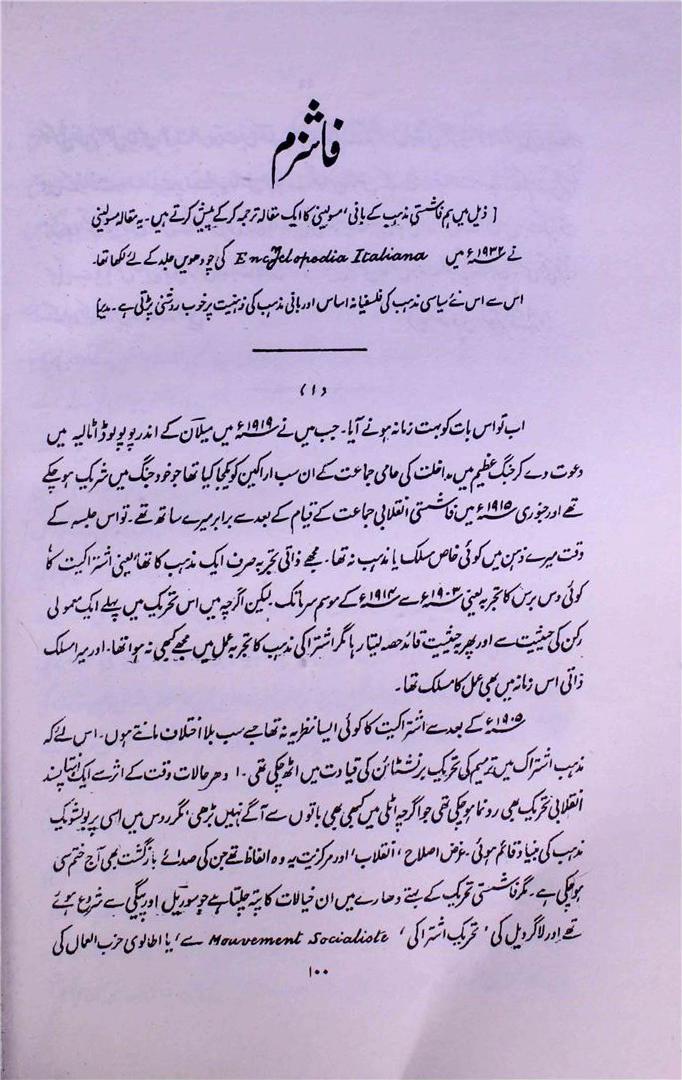 فاشزم
[ ذیل میں ہم فاشستی مذہب کے بانی، مسولینی کا ایک مقالہ ترجمہ کر کے پیش کرتے ہیں۔ یہ مقالہ مسولینی
نے ۱۹۳۲ء میں Encyclopedia Italiana کی چودھویں جلد کے لئے لکھا تھا۔
اس سے اس نئے سیاسی مذہب کی فلسفیانہ اساس اور بانی مذہب کی ذہنیت پر خوب روشنی پڑتی ہے۔ مدیر]
(۱)
اب تو اس بات کو بہت زمانہ ہونے آیا۔ جب میں نے ۱۹۱۹ء میں میلان کے اندر پوپولو ڈ اٹالیہ میں
دعوت دے کر جنگ عظیم میں مداخلت کی حامی جماعت کے ان سب اراکین کو یکجا کیا تھا جو خود جنگ میں شریک ہو چکے
تھے اور جنوری ۱۹۱۵ء میں فاشستی انقلابی جماعت کے قیام کے بعد سے برابر میرے ساتھ تھے۔ تو اس جلسہ کے
وقت میرے ذہن میں کوئی خاص مسلک یا مذہب نہ تھا۔ مجھے ذاتی تجربہ صرف ایک مذہب کا تھا یعنی اشتراکیت کا
کوئی دس برس کا تجربہ یعنی ۱۹۰۳ء سے ۱۹۱۴ء کے موسم سرما تک۔ لیکن اگرچہ میں اس تحریک میں پہلے ایک معمولی
رکن کی حیثیت سے اور پھر بہ حیثیت قائد حصہ لیتا رہا مگر اشتراکی مذہب کا تجربہ عمل میں مجھے کبھی نہ ہوا تھا۔ اور میرا مسلک
ذاتی اس زمانہ میں بھی عمل کا مسلک تھا۔
۱۹۰۵ء کے بعد سے اشتراکیت کا کوئی ایسا نظریہ نہ تھا جسے سب بلا اختلاف مانتے ہوں۔ اس لئے کہ
مذہب اشتراک میں ترمیم کی تحریک برنشٹائن کی قیادت میں اٹھ چکی تھی۔ ادھر حالات وقت کے اثر سے ایک انتہا پسند
انقلابی تحریک بھی رونما ہو چکی تھی جو اگرچہ اٹلی میں کبھی بھی باتوں سے آگے نہیں بڑھی، مگر روس میں اسی پر بولشویک
مذہب کی بنیاد قائم ہوئی۔ غرض اصلاح، انقلاب، اور مرکزیت یہ وہ الفاظ تھے جن کی صدائے بازگشت بھی آج ختم سی
ہو چکی ہے۔ مگر فاشستی تحریک کے بہتے دھارے میں ان خیالات کا پتہ چلتا ہے جو سوریل اور پیگی سے شروع ہوئے
تھے اور لاگردیل کی ’تحریک اشتراکی‘ Mouvement Socialiste سے، یا اطالوی حزب العمال کی
۱۰۰